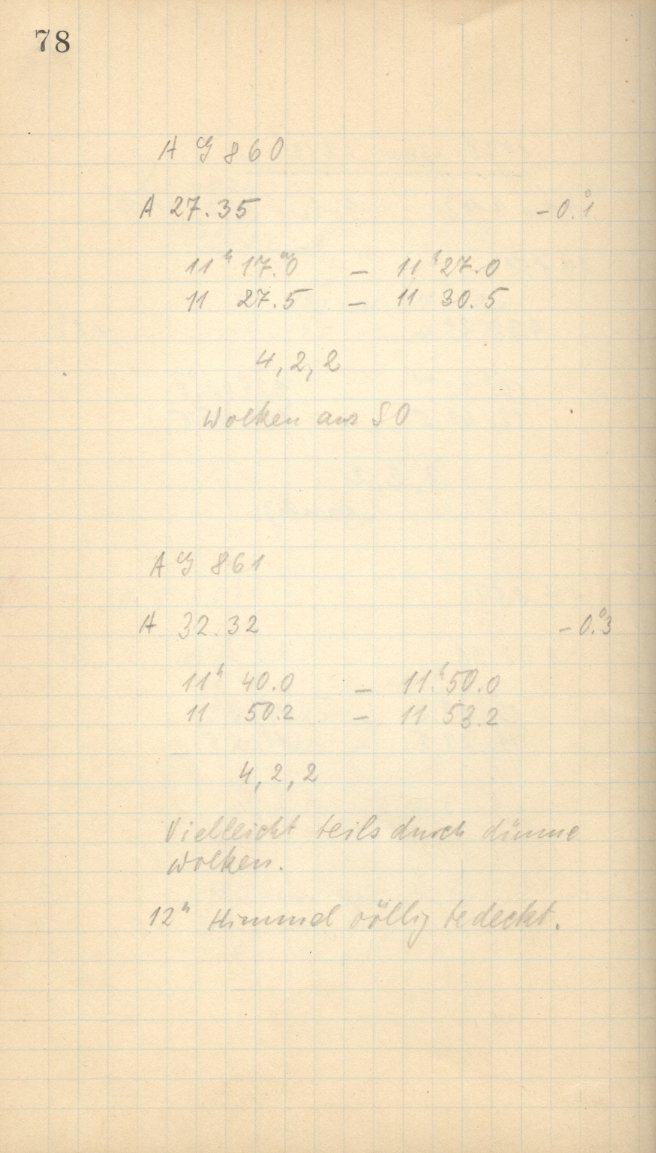 78
A G 860
A 27.35 -0.°1
11ʰ 17.ᵐ0 – 11ʰ 27.0
11 27.5 – 11 30.5
4, 2, 2
Wolken aus SO
A G 861
A 32.32 -0.°3
11ʰ 40.0 – 11ʰ 50.0
11 50.2 – 11 53.2
4, 2, 2
Vielleicht teils durch dünne
Wolken.
12ʰ Himmel völlig bedeckt.